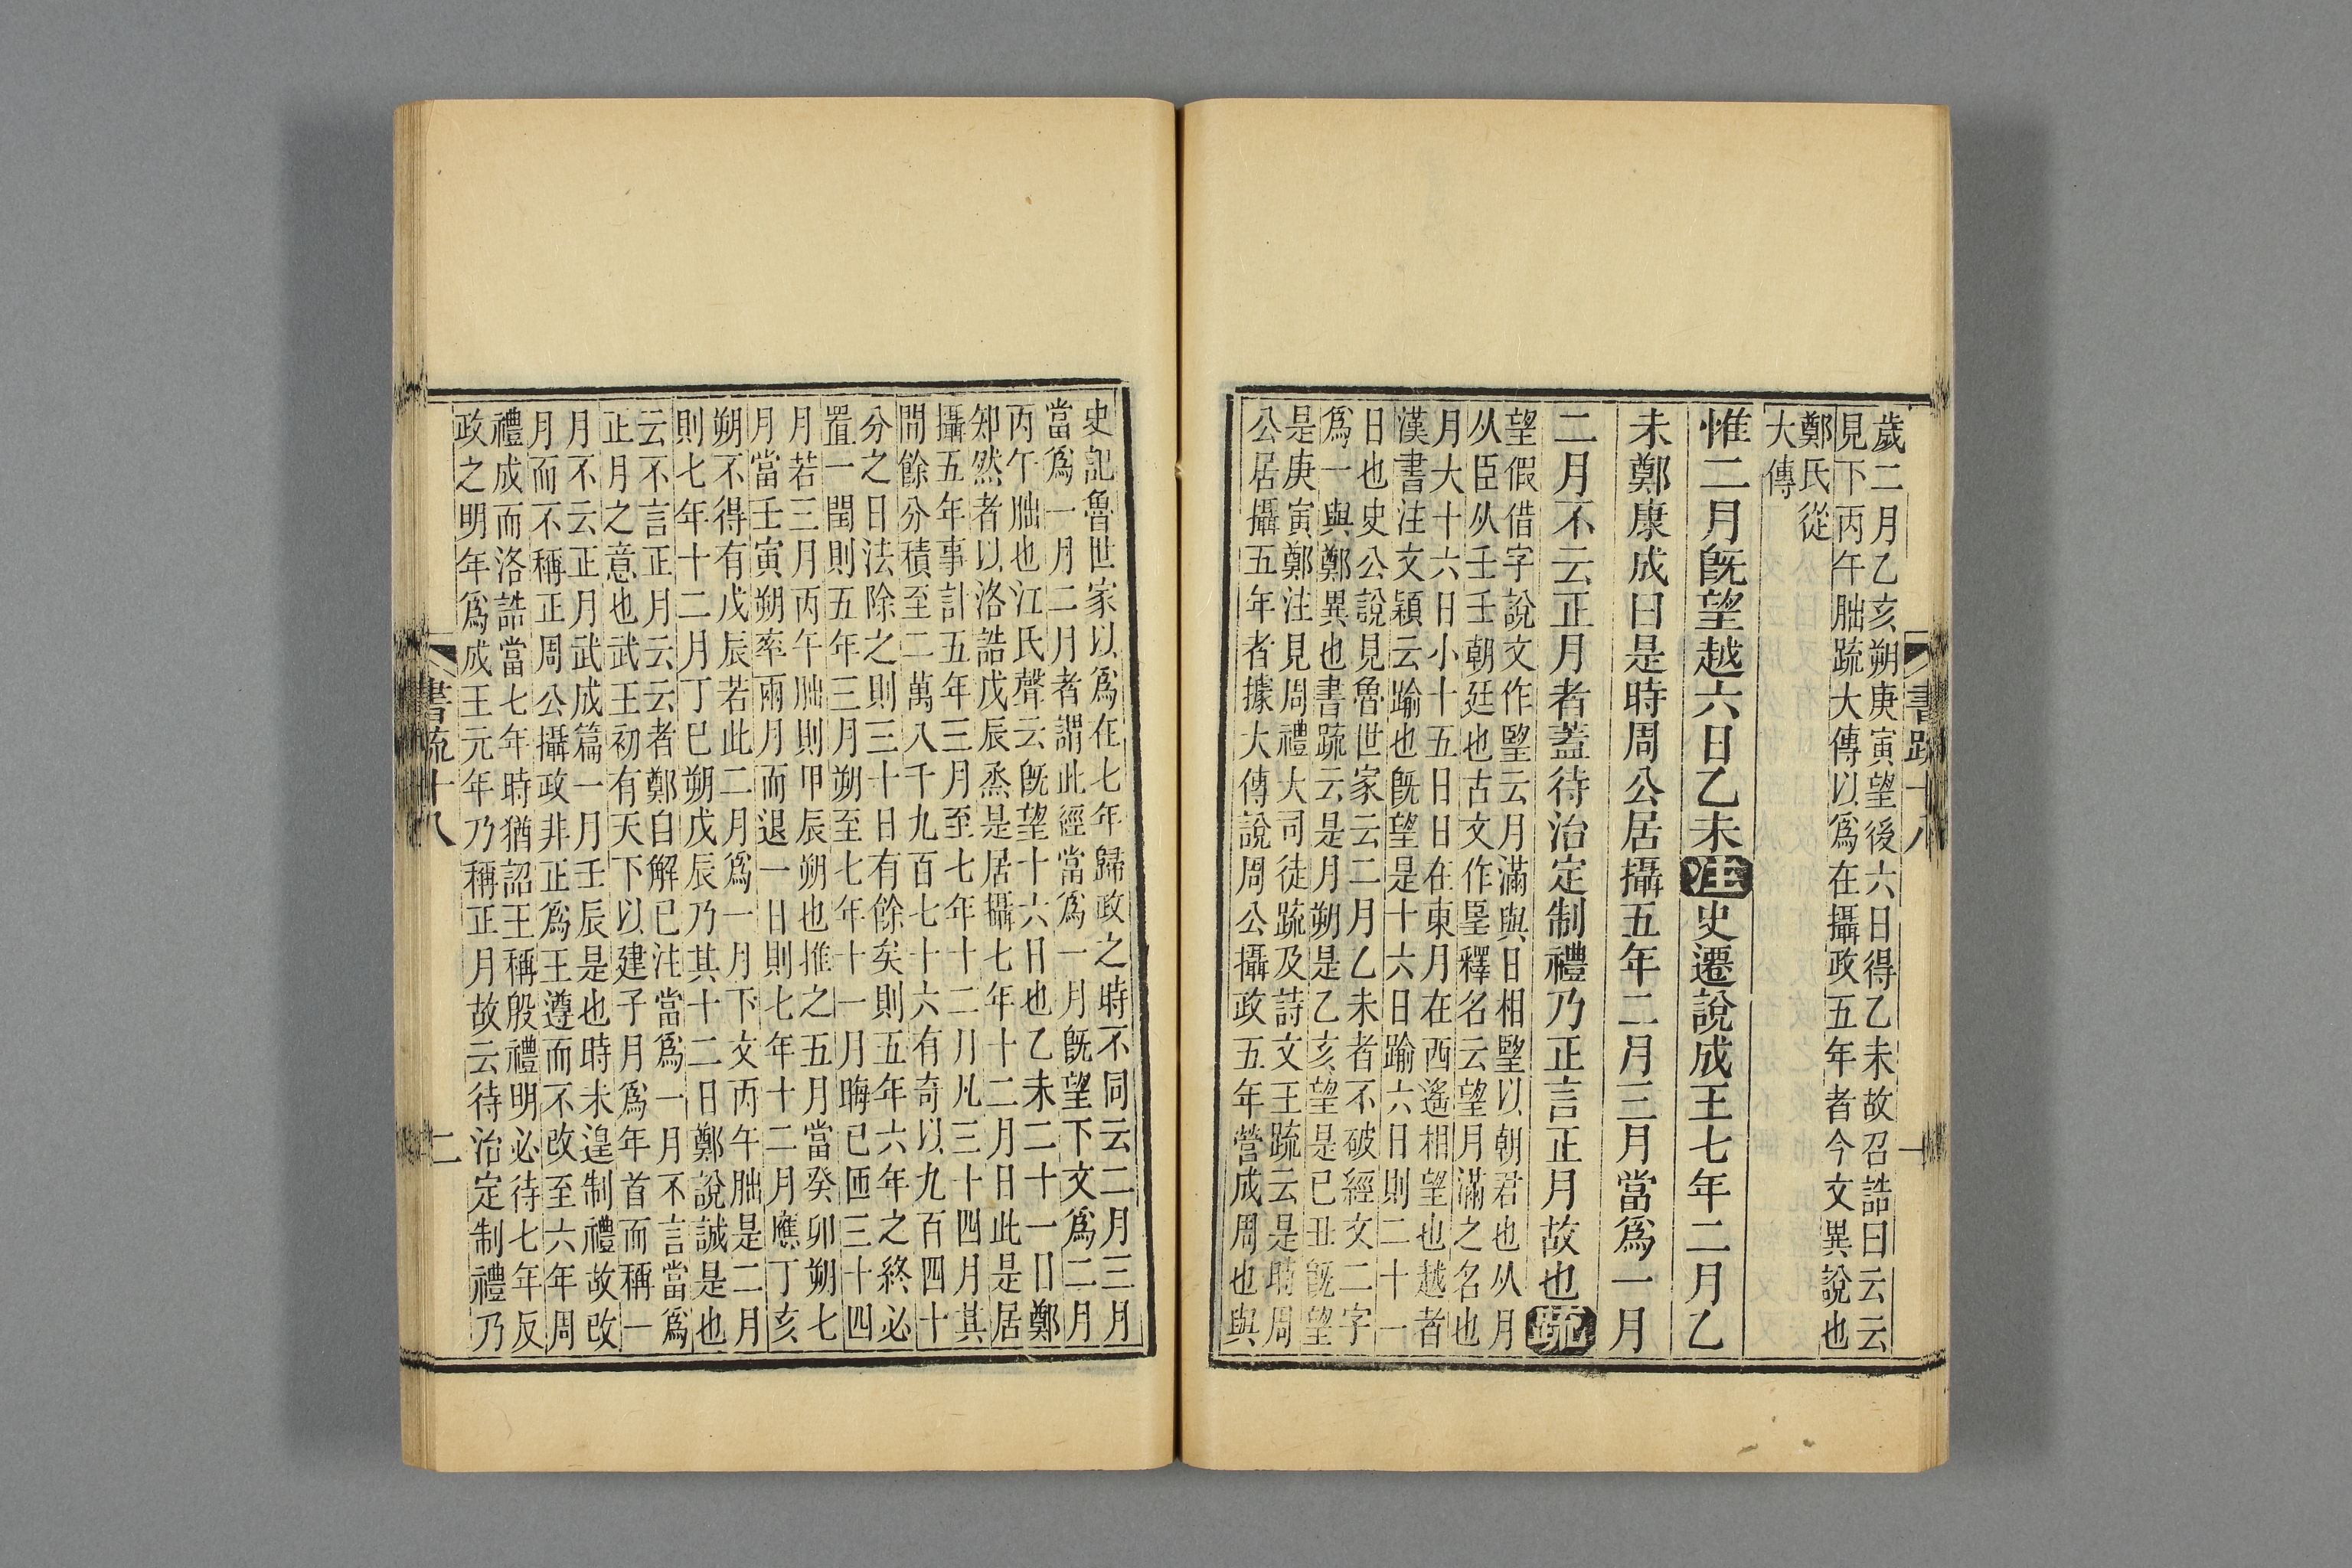 歲二月乙亥朔庚寅望後六日得乙未故召誥曰云云
見下丙午朏疏大傳以為在攝政五年者今文異說也
鄭氏從
大傳
惟二月旣望越六日乙未注史遷說成王七年二月乙
未鄭康成曰是時周公居攝五年二月三月當爲一月
二月不云正月者蓋待治定制禮乃正言正月故也疏
望假借字說文作朢云月滿與日相朢以朝君也从月
从臣从壬壬朝廷也古文作𦣠釋名云望月滿之名也
月大十六日小十五日日在東月在西遙相望也越者
漢書注文穎云踰也旣望是十六日踰六日則二十一
日也史公說見魯世家云二月乙未者不破經文二字
爲一與鄭異也書疏云是月朔是乙亥望是己丑旣望
是庚寅鄭注見周禮大司徒疏及詩文王疏云是時周
公居攝五年者據大傳說周公攝政五年營成周也與
書疏十八
一
史記魯世家以爲在七年歸政之時不同云二月三月
當爲一月二月者謂此經當爲一月旣望下文爲二月
丙午朏也江氏聲云旣望十六日也乙未二十一日鄭
知然者以洛誥戊辰烝是居攝七年十二月日此是居
攝五年事計五年三月至七年十二月凡三十四月其
閒餘分積至二萬八千九百七十六有奇以九百四十
分之日法除之則三十日有餘矣則五年六年之終必
置一閏則五年三月朔至七年十一月晦已匝三十四
月若三月丙午朏則甲辰朔也推之五月當癸卯朔七
月當壬寅朔率兩月而退一日則七年十二月應丁亥
朔不得有戊辰若此二月爲一月下文丙午朏是二月
則七年十二月丁巳朔戊辰乃其十二日鄭說誠是也
云不言正月云云者鄭自解已注當爲一月不言當爲
正月之意也武王初有天下以建子月爲年首而稱一
月不云正月武成篇一月壬辰是也時未遑制禮故改
月而不稱正周公攝政非正爲王遵而不改至六年周
禮成而洛誥當七年時猶詔王稱殷禮明必待七年反
政之明年爲成王元年乃稱正月故云待治定制禮乃
書疏十八
二